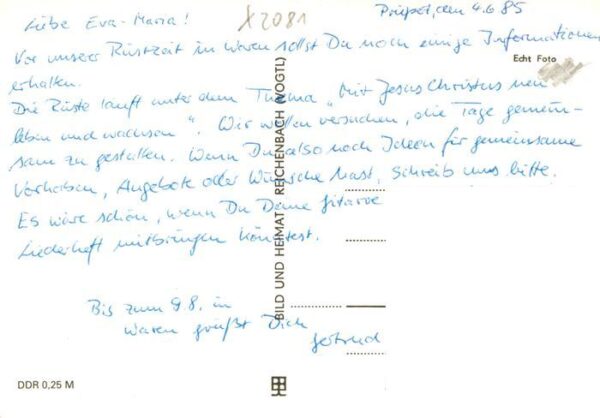 Liebe Eva-Maria!
X2081
Priepert, den 4.6.85
Vor unserer Rüstzeit in Waren sollst Du noch einige Informationen
erhalten.
Echt Foto
Die Rüste läuft unter dem Thema „Mit Jesus Christus neu
leben und wachsen“. Wir wollen versuchen, die Tage gemein-
sam zu gestalten. Wenn Du also noch Ideen für gemeinsame
Vorhaben, Angebote oder Wünsche hast, schreib uns bitte.
Es wäre schön, wenn Du Deine Gitarre
Liederheft mitbringen könntest.
Bis zum 9.8. in
Waren grüßt Dich
Gertrud
BILD UND HEIMAT REICHENBACH (VOGTL)
DDR 0,25 M